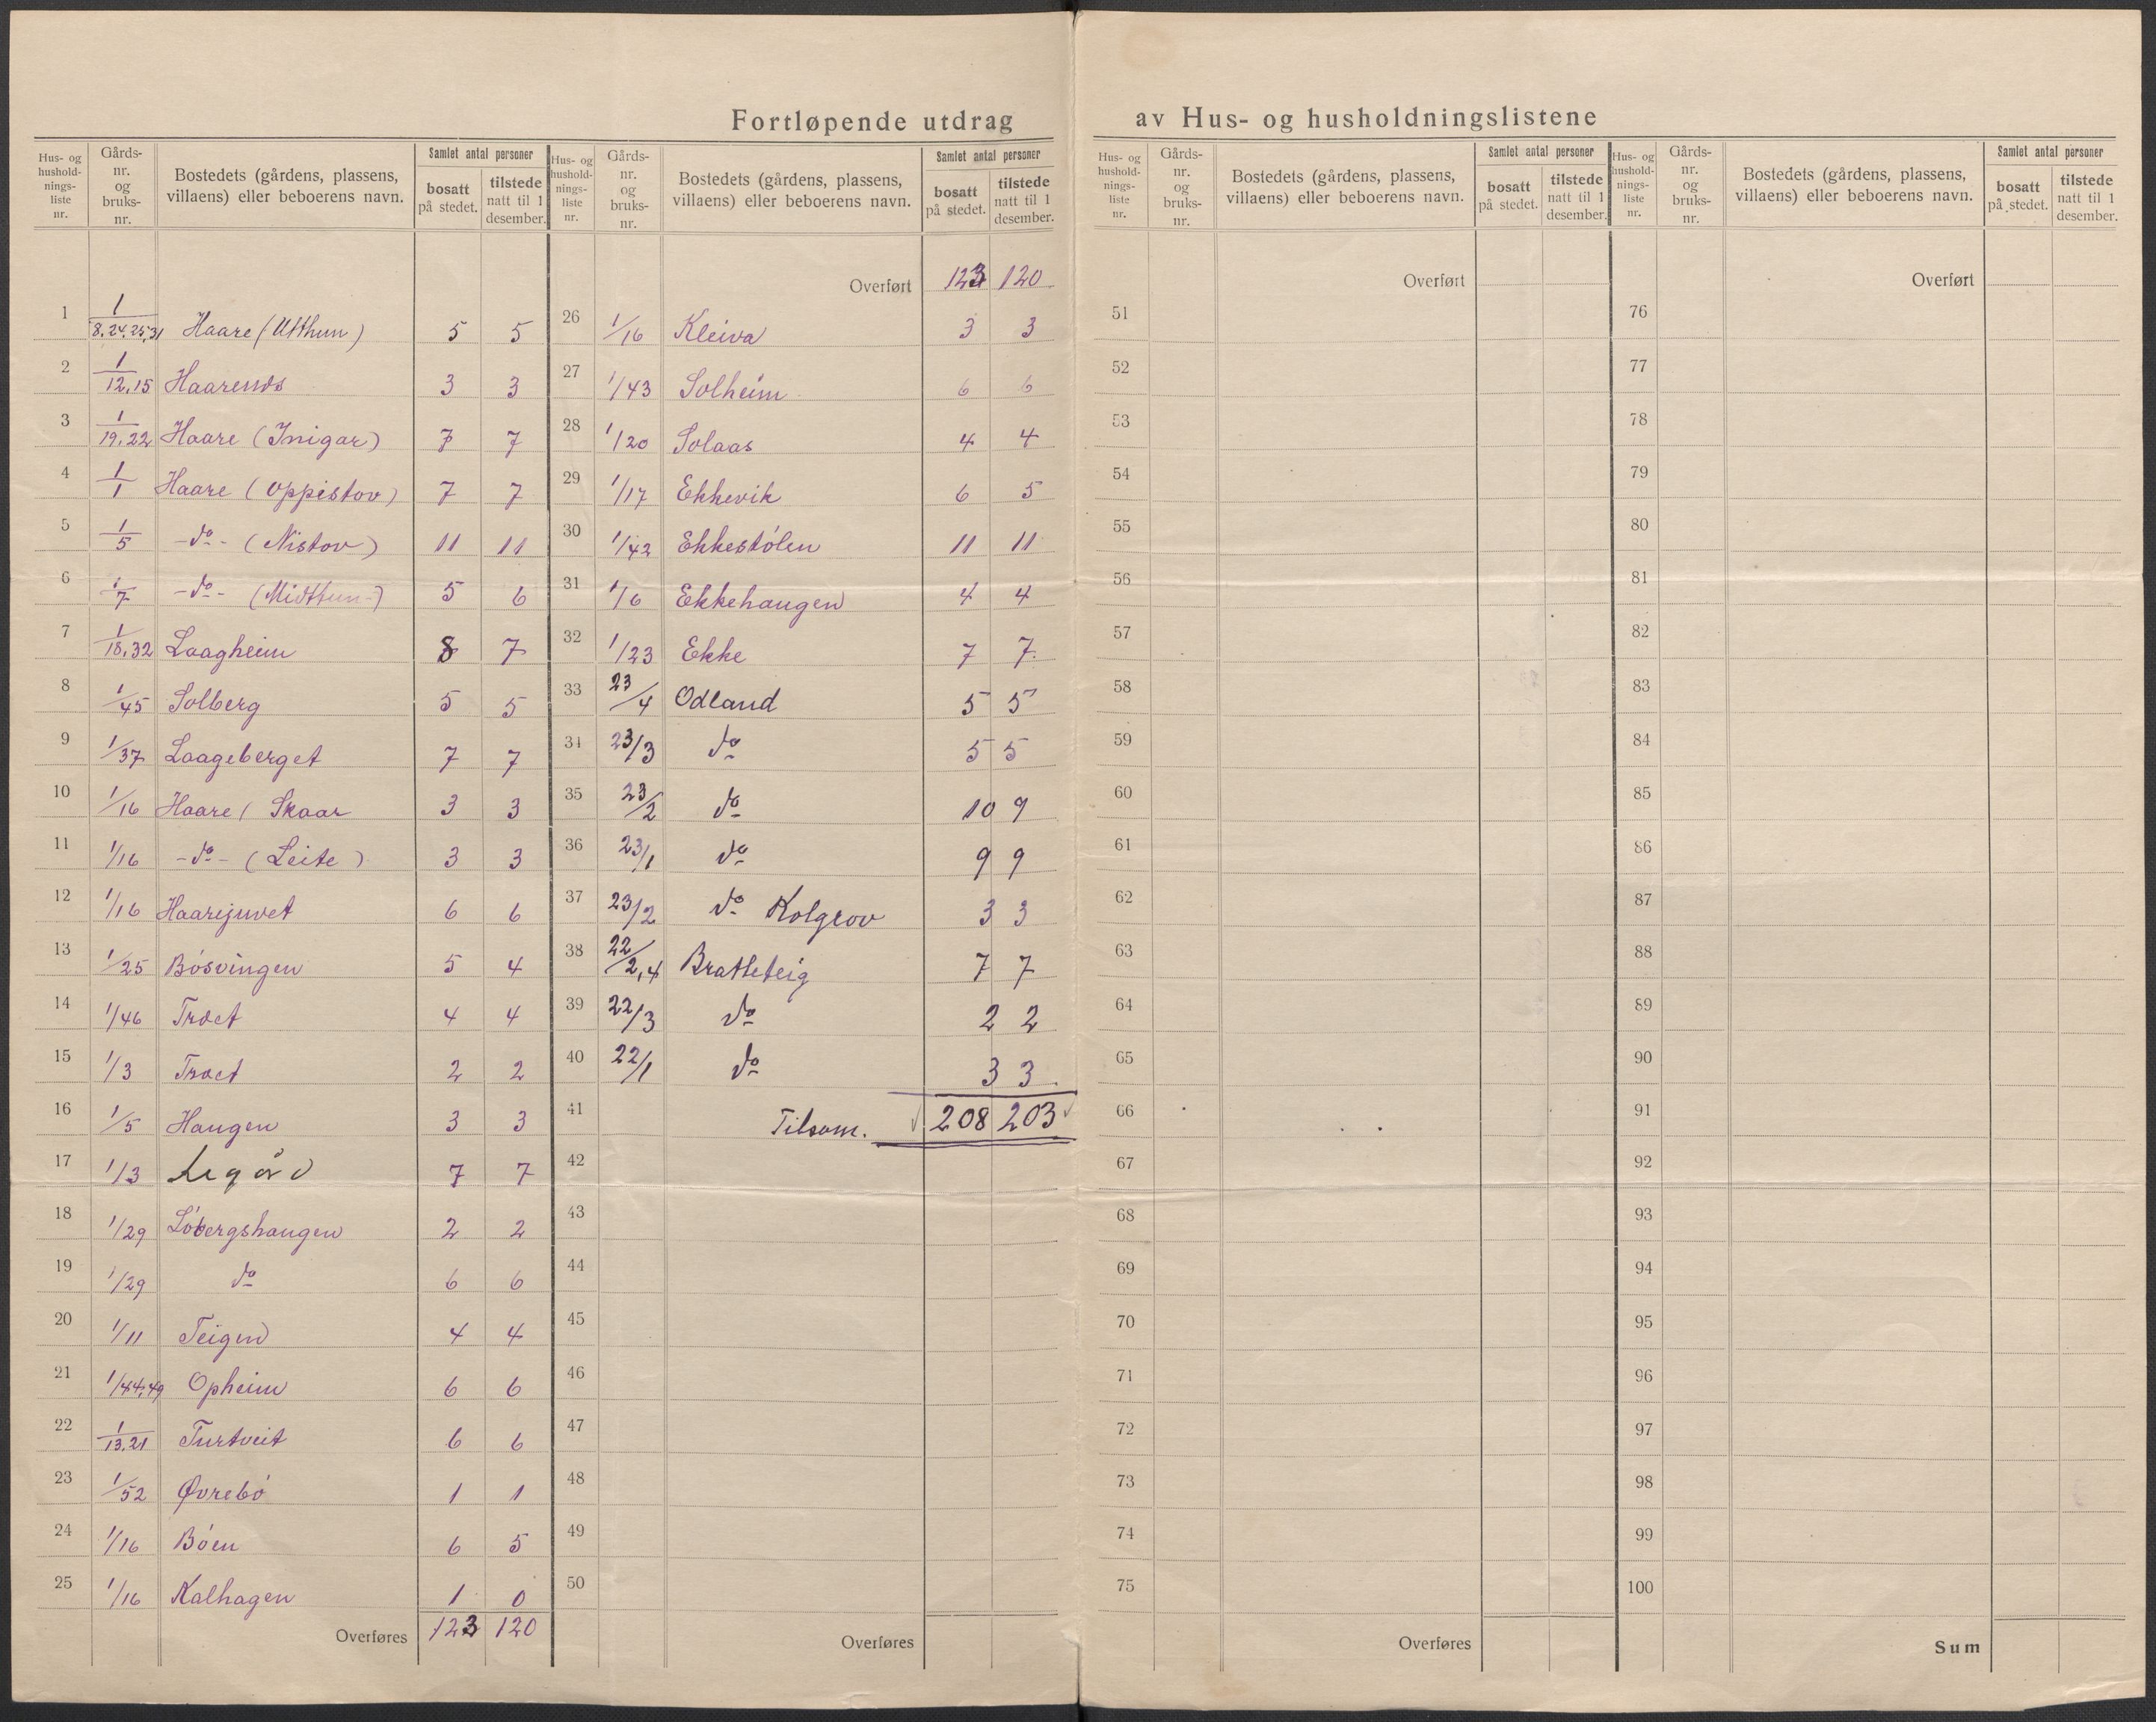 Fortløpende utdrag av Hus- og husholdningslistene
Hus- og hushold- nings- liste nr. | Gårds- nr. og bruks- nr. | Bostedets (gårdens, plassens, villaens) eller beboerens navn. | Samlet antal personer | bosatt på stedet. | tilstede natt til 1 desember.
1 | 1/8,24,25,31 | Haare (Utthun) | 5 | 5
2 | 1/12,15 | Haarends | 3 | 3
3 | 1/19,22 | Haare (Inigar) | 7 | 7
4 | 1/1 | Haare (Oppistov) | 7 | 7
5 | 1/5 | -do- (Nistov) | 11 | 11
6 | 1/7 | -do- (Midttun) | 5 | 6
7 | 1/18,32 | Laagheim | 8 | 7
8 | 1/45 | Solberg | 5 | 5
9 | 1/37 | Laageberget | 7 | 7
10 | 1/16 | Haare ( Skaar | 3 | 3
11 | 1/16 | -do- (Leite) | 3 | 3
12 | 1/16 | Haarejuvet | 6 | 6
13 | 1/25 | Bósvingen | 5 | 4
14 | 1/46 | Træet | 4 | 4
15 | 1/3 | Træet | 2 | 2
16 | 1/5 | Haugen | 3 | 3
17 | 1/3 | Legård | 7 | 7
18 | 1/29 | Lóbergshaugen | 2 | 2
19 | 1/29 | do | 6 | 6
20 | 1/11 | Teigen | 4 | 4
21 | 1/44,49 | Opheim | 6 | 6
22 | 1/13,21 | Turtveit | 6 | 6
23 | 1/52 | Øvrebó | 1 | 1
24 | 1/16 | Bóen | 6 | 5
25 | 1/16 | Kalhagen | 1 | 0
Overføres | 123 | 120
Hus- og hushold- nings- liste nr. | Gårds- nr. og bruks- nr. | Bostedets (gårdens, plassens, villaens) eller beboerens navn. | Samlet antal personer | bosatt på stedet. | tilstede natt til 1 desember.
Overført | 123 | 120
26 | 1/16 | Kleiva | 3 | 3
27 | 1/43 | Solheim | 6 | 6
28 | 1/20 | Solaas | 4 | 4
29 | 1/17 | Ekkevik | 6 | 5
30 | 1/42 | Ekkestólen | 11 | 11
31 | 1/6 | Ekkehaugen | 4 | 4
32 | 1/23 | Ekke | 7 | 7
33 | 23/4 | Odland | 5 | 5
34 | 23/3 | do | 5 | 5
35 | 23/2 | do | 10 | 9
36 | 23/1 | do | 9 | 9
37 | 23/2 | do Kolgrov | 3 | 3
38 | 22/2,4 | Bratteteig | 7 | 7
39 | 22/3 | do | 2 | 2
40 | 22/1 | do | 3 | 3
41 | Tilsam. | 208 | 203
42
43
44
45
46
47
48
49
50
Overføres
Hus- og hushold- nings- liste nr. | Gårds- nr. og bruks- nr. | Bostedets (gårdens, plassens, villaens) eller beboerens navn. | Samlet antal personer | bosatt på stedet. | tilstede natt til 1 desember.
Overført
51
52
53
54
55
56
57
58
59
60
61
62
63
64
65
66
67
68
69
70
71
72
73
74
75
Overføres
Hus- og hushold- nings- liste nr. | Gårds- nr. og bruks- nr. | Bostedets (gårdens, plassens, villaens) eller beboerens navn. | Samlet antal personer | bosatt på stedet. | tilstede natt til 1 desember.
Overført
76
77
78
79
80
81
82
83
84
85
86
87
88
89
90
91
92
93
94
95
96
97
98
99
100
Sum